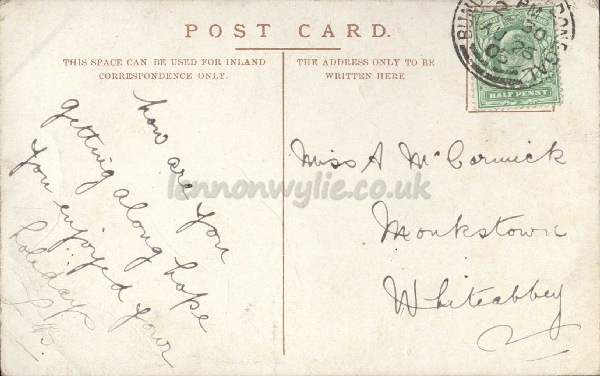 POST CARD.
THIS SPACE CAN BE USED FOR INLAND
CORRESPONDENCE ONLY.
THE ADDRESS ONLY TO BE
WRITTEN HERE
HALF PENNY
how are you
getting along hope
you enjoyed your
holidays
Miss A McCormick
Monkstown
Whiteabbey
lennonwylie.co.uk